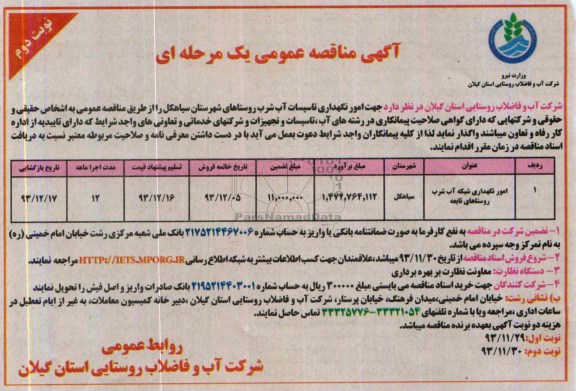 نوبت دوم
آگهی مناقصه عمومی یک مرحله ای
وزارت نیرو
شرکت آب و فاضلاب روستایی استان گیلان
شرکت آب و فاضلاب روستایی استان گیلان در نظر دارد جهت امور نگهداری تاسیسات آب شرب روستاهای شهرستان سیاهکل را از طریق مناقصه عمومی به اشخاص حقیقی و
حقوقی و شرکتهایی که دارای گواهی صلاحیت پیمانکاری در رشته های آب ،تاسیسات و تجهیزات و شرکتهای خدماتی و تعاونی های واجد شرایط که دارای تاییدیه از اداره
کار رفاه و تعاون میباشند واگذار نماید لذا از کلیه پیمانکاران واجد شرایط دعوت بعمل می آید با در دست داشتن معرفی نامه و صلاحیت مربوطه معتبر نسبت به دریافت
اسناد مناقصه در زمان مقرر اقدام نمایند.
ردیف عنوان شهرستان مبلغ برآورد مبلغ تضمین تاریخ خاتمه فروش تسلیم پیشنهاد قیمت مدت اجرا ماهه تاریخ بازگشایی
۱ امور نگهداری شبکه آب شرب روستاهای تابعه سیاهکل ۱,۴۷۲,۷۶۴,۱۱۲ ۱۱,۰۰۰,۰۰۰ ۹۳/۱۲/۰۵ ۹۳/۱۲/۱۶ ۱۲ ۹۳/۱۲/۱۷
ParsNamadData
۱- تضمین شرکت در مناقصه به نفع کارفرما به صورت ضمانتنامه بانکی یا واریز به حساب شماره ۲۱۷۵۲۱۴۴۶۷۰۰۶ بانک ملی شعبه مرکزی رشت خیابان امام خمینی (ره)
به نام تمرکز وجه سپرده می باشد.
۲- شروع فروش اسناد مناقصه از تاریخ ۹۳/۱۱/۳۰ میباشد،علاقمندان جهت کسب اطلاعات بیشتر به شبکه اطلاع رسانی HTTP://IETS.MPORG.IR مراجعه نمایند.
۳- دستگاه نظارت: معاونت نظارت بر بهره برداری
۴- شرکت کنندگان جهت خرید اسناد مناقصه می بایستی مبلغ ۳۰۰۰۰۰ ریال به حساب شماره ۲۱۹۵۲۱۴۴۰۳۰۰۱ بانک صادرات واریز و اصل فیش را تحویل نمایند
ب) نشانی رشت: خیابان امام خمینی،میدان فرهنگ، خیابان پرستار، شرکت آب و فاضلاب روستایی استان گیلان ،دبیر خانه کمیسیون معاملات، به غیر از ایام تعطیل در
ساعات اداری ،مراجعه ویا با شماره تلفنهای ۳۳۳۲۱۰۵۴-۳۳۳۲۵۷۷۶ تماس حاصل نمایند.
هزینه دو نوبت آگهی بعهده برنده مناقصه میباشد.
نوبت اول: ۹۳/۱۱/۲۹
نوبت دوم: ۹۳/۱۱/۳۰
روابط عمومی
شرکت آب و فاضلاب روستایی استان گیلان